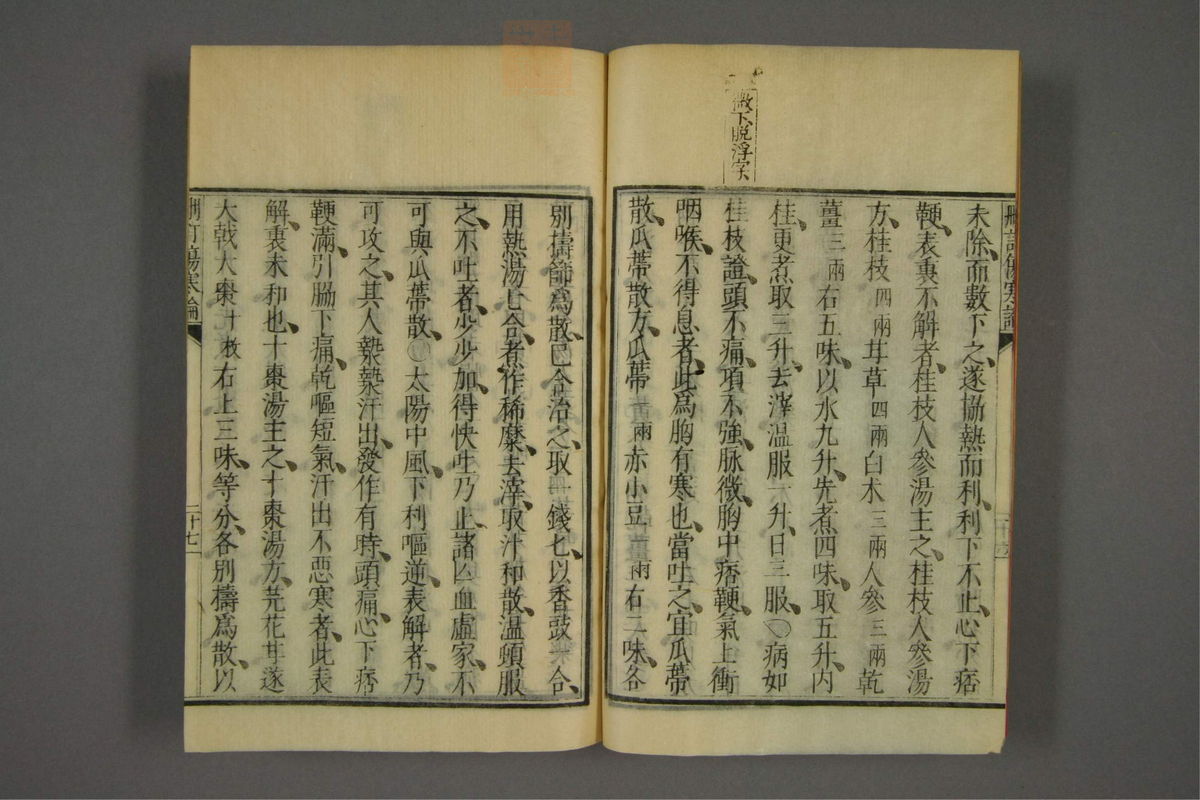 微下脫浮字
刪訂傷寒論
未除、而數下之、遂協熱而利、利下不止、心下痞
鞕、表裏不解者、桂枝人參湯主之、桂枝人參湯
方、桂枝四兩甘草四兩白朮三兩人參三兩乾
薑三兩右五味、以水九升、先煮四味、取五升、內
桂、更煮取三升、去滓溫服一升、日三服、○病如
桂枝證、頭不痛、項不強、脉微、胸中痞鞕、氣上衝
咽喉、不得息者、此爲胸有寒也、當吐之、宜瓜蔕
散、瓜蔕散方、瓜蔕 兩赤小豆 兩右二味、各
別擣篩爲散、已合治之、取一錢匕、以香豉 合、
用熱湯七合、煮作稀糜、去滓、取汁和散、溫頓服
之、不吐者、少少加、得快吐乃止、諸亾血虛家、不
可與瓜蔕散、○太陽中風、下利嘔逆、表解者、乃
可攻之、其人漐漐汗出、發作有時、頭痛、心下痞
鞕滿、引脇下痛、乾嘔短氣、汗出不惡寒者、此表
解、裏未和也、十棗湯主之、十棗湯方、芫花甘遂
大戟大棗十枚右上三味、等分、各別擣爲散、以
刪訂傷寒論
二十七